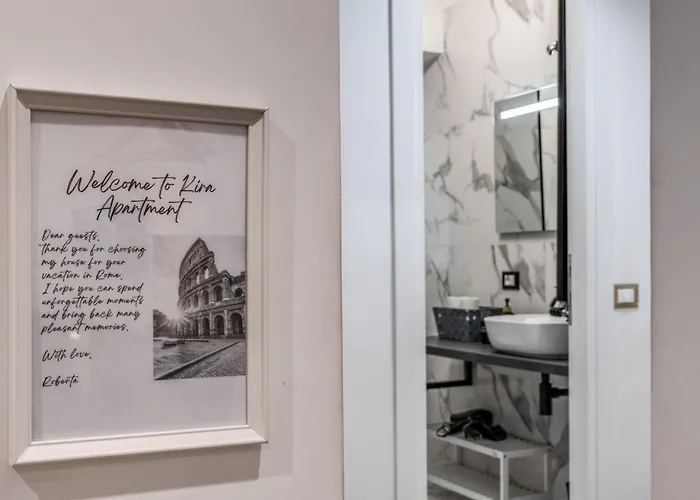 Welcome to Kira
Apartment
Dear guests,
thank you for choosing
my house for your
vacation in Rome.
I hope you can spend
unforgettable moments
and bring back many
pleasant memories.
With love,
Roberta